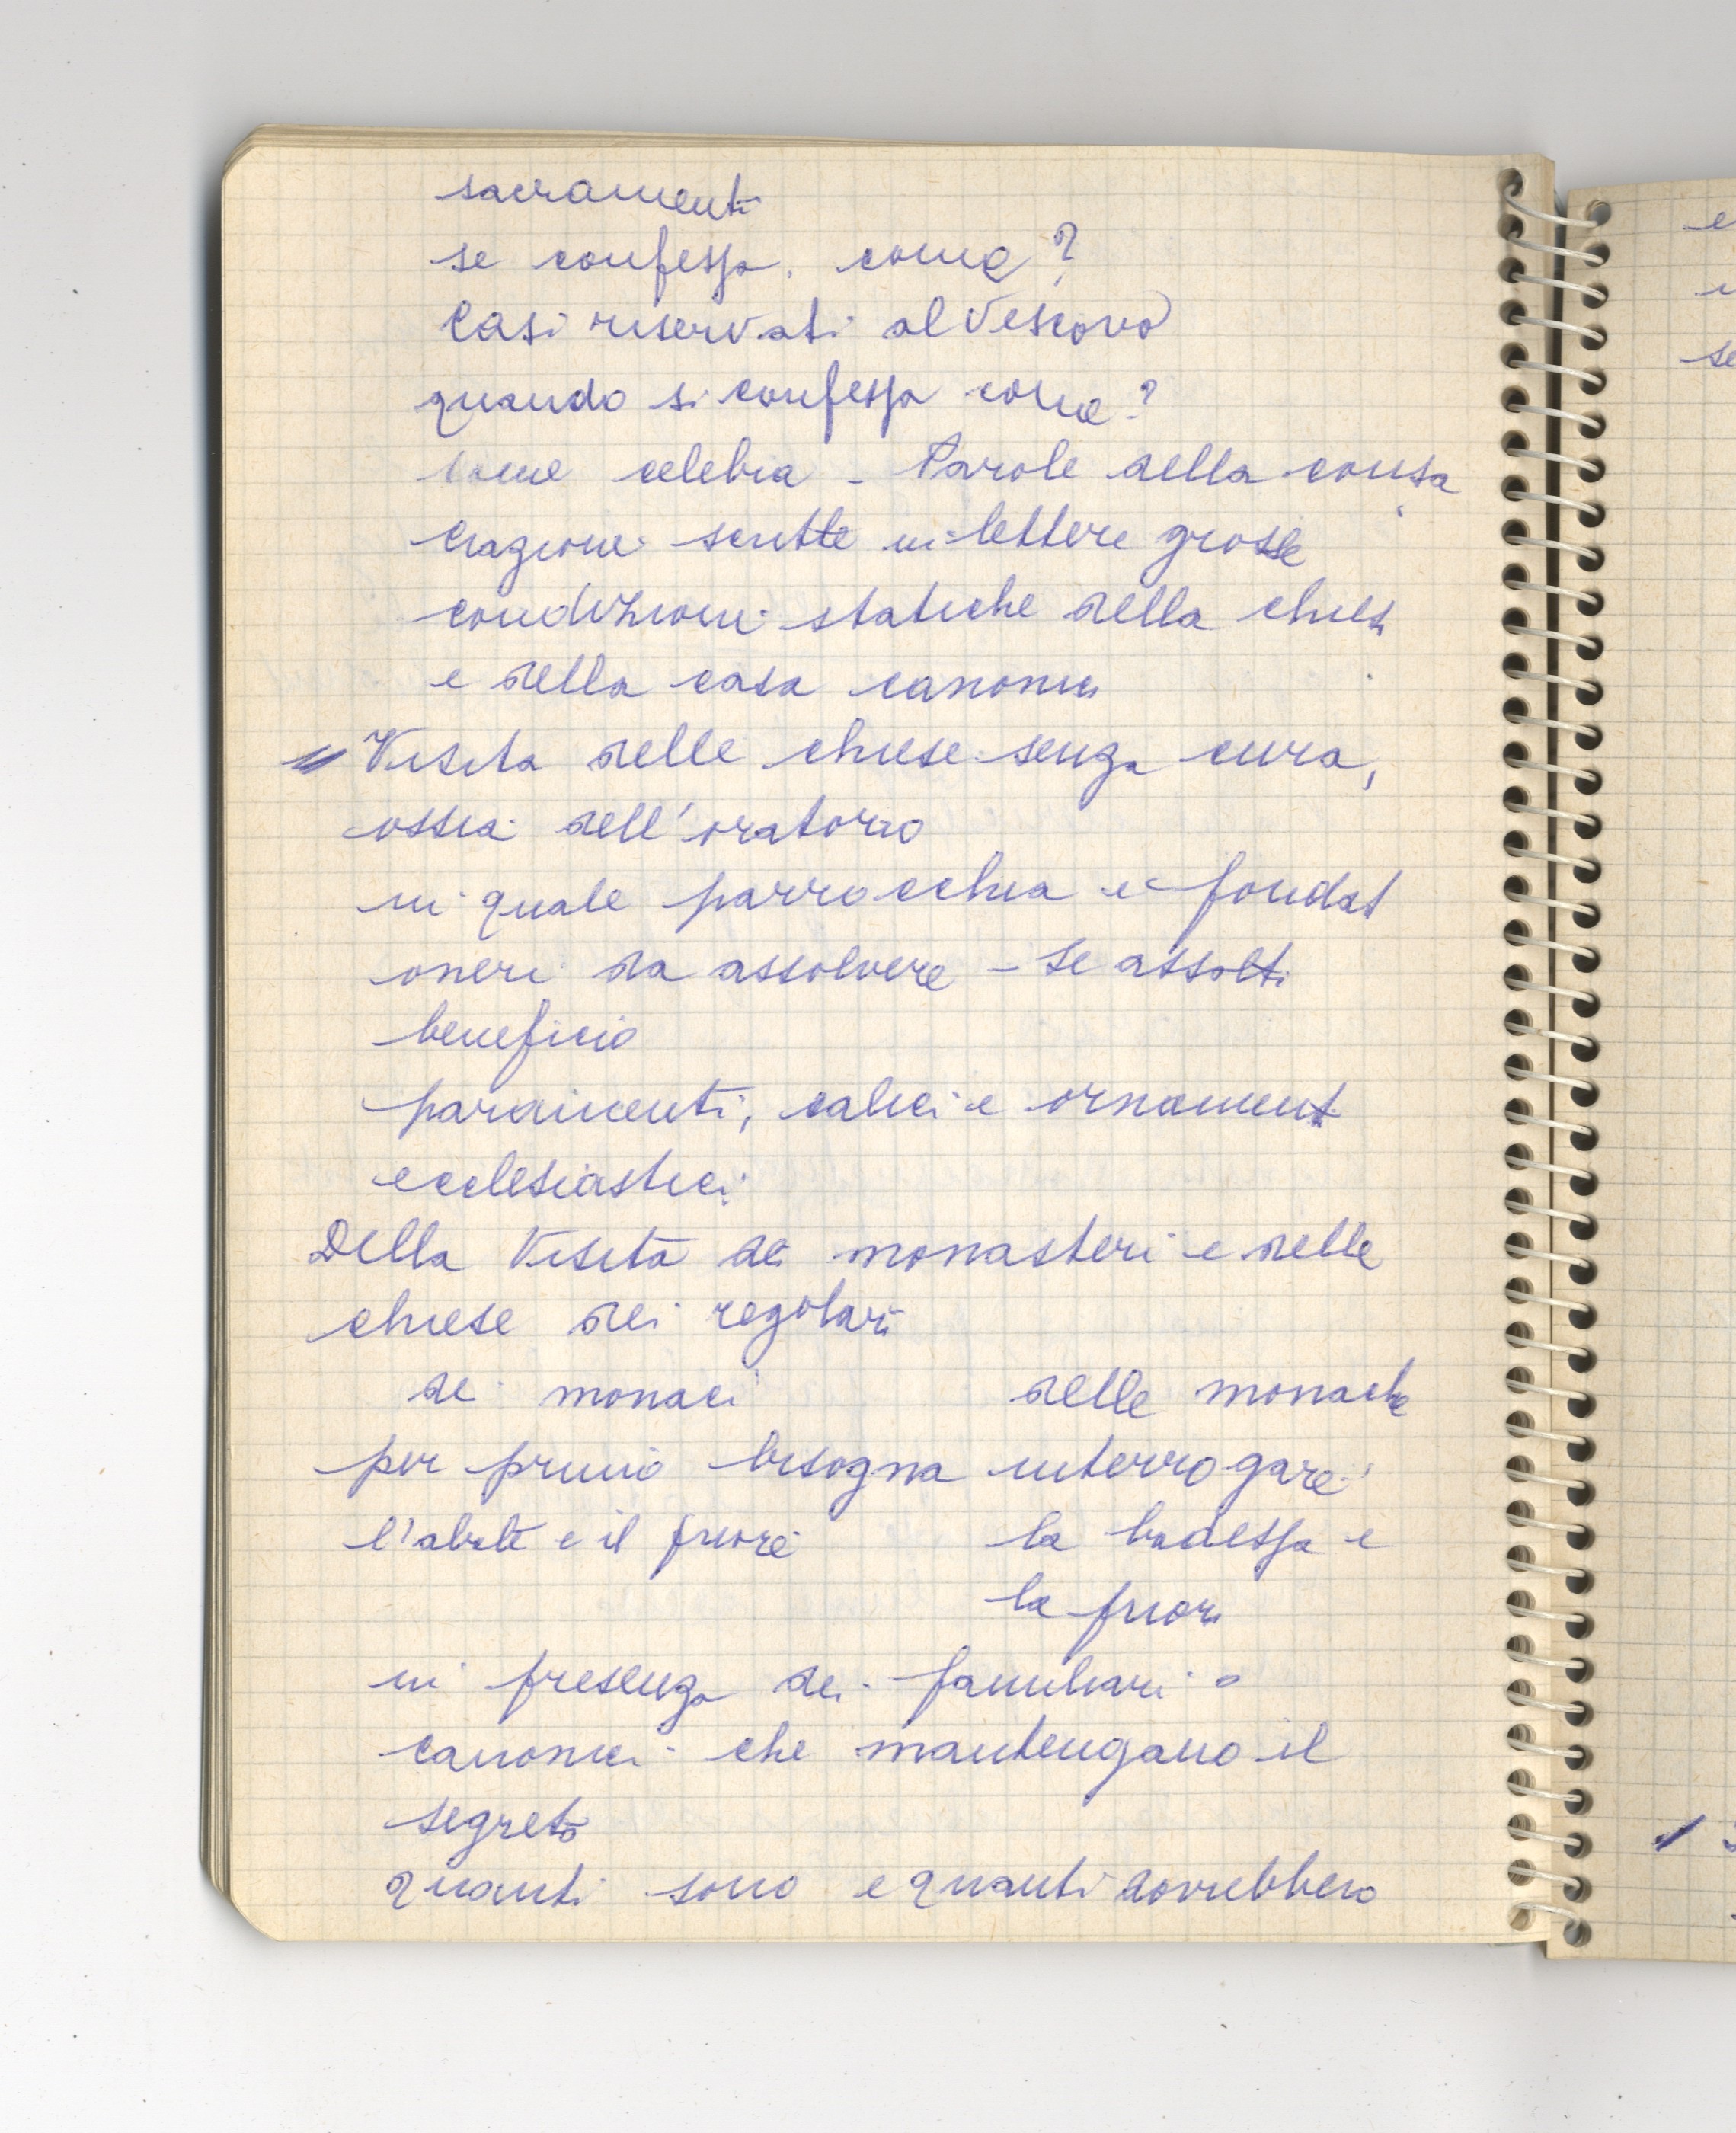 sacramenti
se confessa. come?
Casi riservati al Vescovo
quando si confessa come?
come celebra - Parole della consa
crazione scritte in lettere grosse
condizioni statiche della chiesa
e della casa canonica
Visita delle chiese senza cura,
ossia dell'oratorio
in quale parrocchia e fondat
oneri da assolvere - se assolti
beneficio
paramenti, calici e ornament
ecclesiastici
Della Visita dei monasteri e delle
chiese dei regolari
dei monaci delle monache
per primo bisogna interrogare
l'abate e il priore la badessa e
la priora
in presenza dei familiari o
canonici che mantengano il
segreto
quanti sono e quanti dovrebbero
e
se